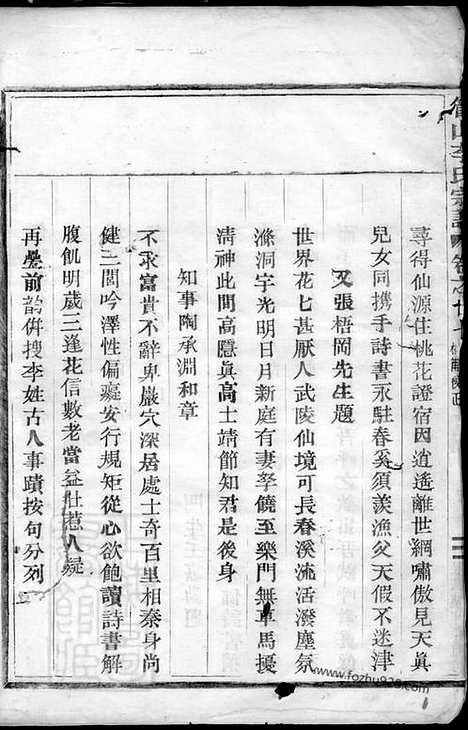 管山李氏宗譜
尋得仙源住桃花證宿因逍遙離世網嘯傲見天眞
兒女同携手詩書永駐春奚須羨漁父天假不迷津
又張梧岡先生題
世界花花甚厭人武陵仙境可長春溪流活潑塵氛
滌洞宇光明日月新庭有妻孥饒至樂門無車馬擾
清神此間高隱真高士靖節知君是後身
知事陶承淵和章
不求富貴不辭卑巖穴深居處士奇百里相秦身尚
健三閭吟澤性偏癡安行規矩從心欲飽讀詩書解
腹飢明歲三逢花信數老當益壯惹人疑
再疊前韵併搜李姓古人事蹟按句分列
www.fozhu920.com